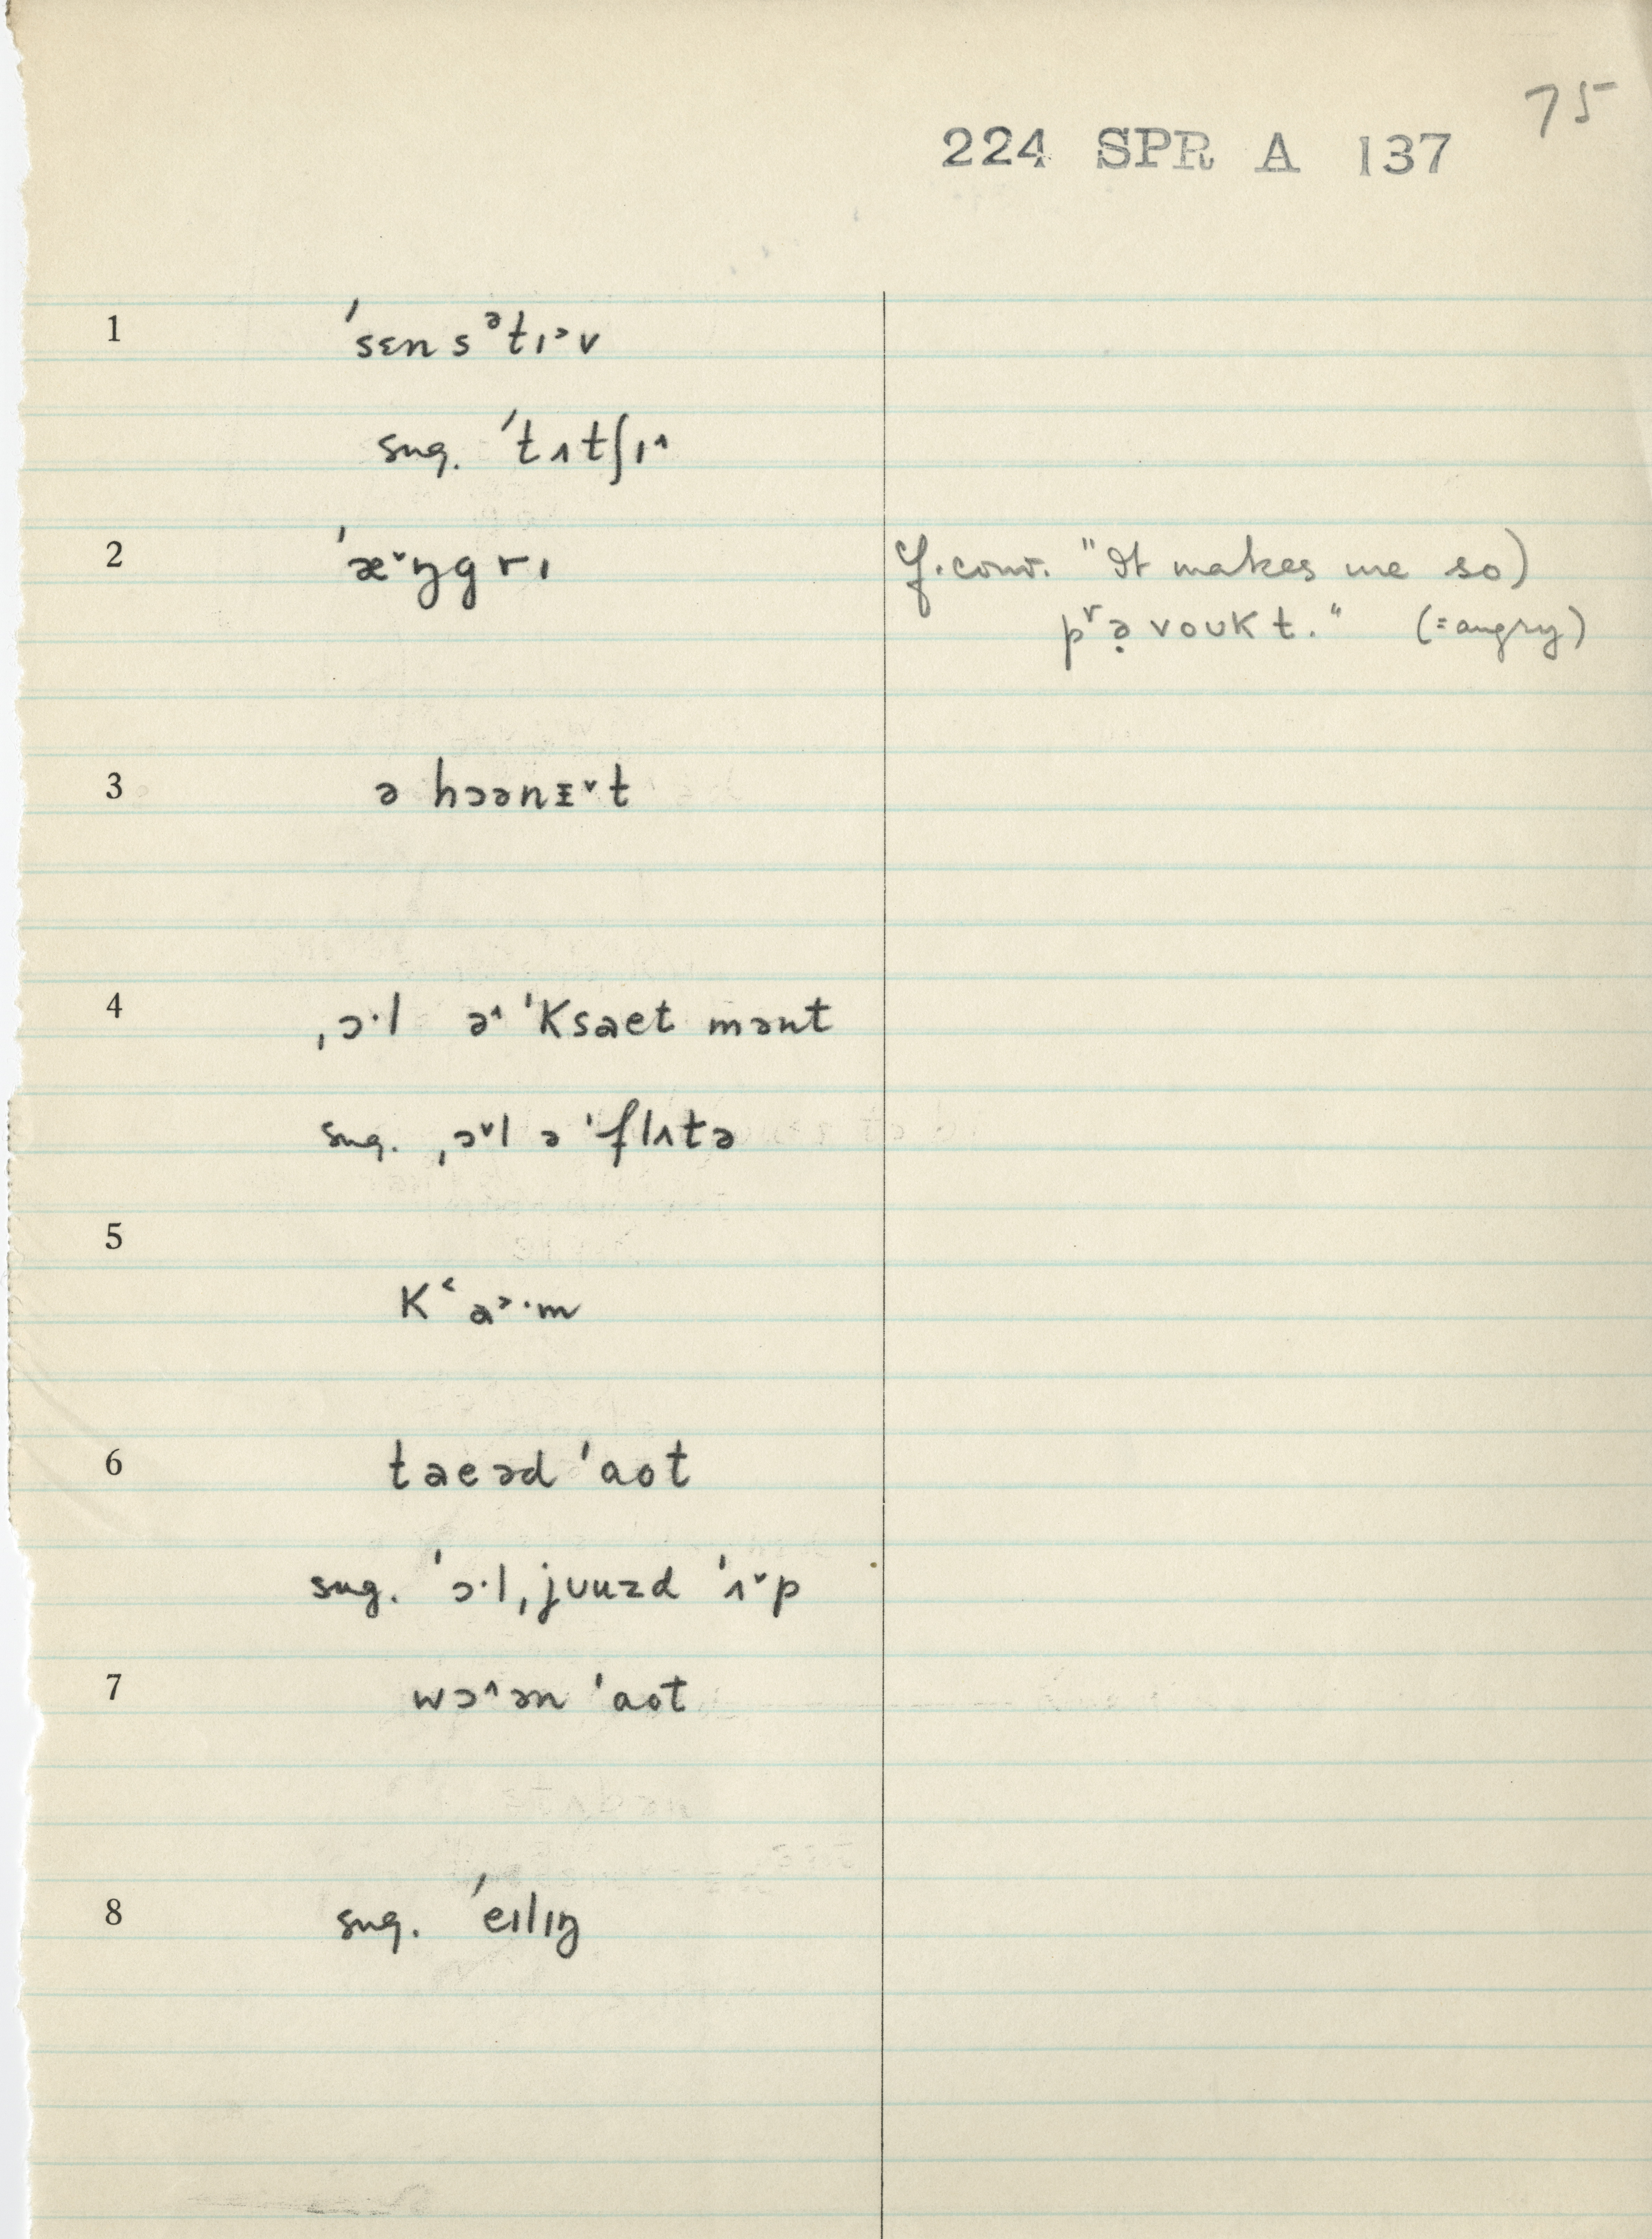 75
224 SPR A 137
1 ˈsɛnsᵊtɪ˃v
sug. ˈtʌtʃɪ˄
2 ˈæ˅ŋgrɪ
cf. conv. "It makes me so)
pʳə̣voukt." (=angry)
3 ə hɔənᵻ˅t
4 ˌɔ·l ə˄ ˈksaet mənt
sug. ˌɔ˅l ə ˈflʌtə
5
Kʿa˃·m
6 taeəd ˈaot
sug. ˈɔ·l ˌjuuzd ˈʌ˅p
7 wɔ˄ən ˈaot
8 sug. ˈeɪlɪŋ